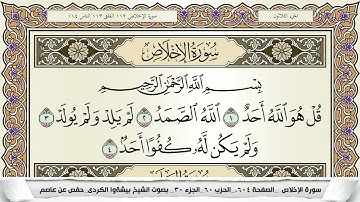 الجزء الثلاثون
سورة الإخلاص ١١٢ الفلق ١١٣ الناس ١١٤
سُورَةُ الإِخْلَاصِ
بِسْمِ اللَّهِ الرَّحْمَٰنِ الرَّحِيمِ
قُلْ هُوَ اللَّهُ أَحَدٌ ١ اللَّهُ الصَّمَدُ ٢ لَمْ يَلِدْ وَلَمْ يُولَدْ ٣
وَلَمْ يَكُن لَّهُ كُفُوًا أَحَدٌ ٤
سورة الإخلاص _ الصفحة ٦٠٤_ الحزب ٦٠_ الجزء ٣٠_ بصوت الشيخ بيشةوا الكردي_ حفص عن عاصم